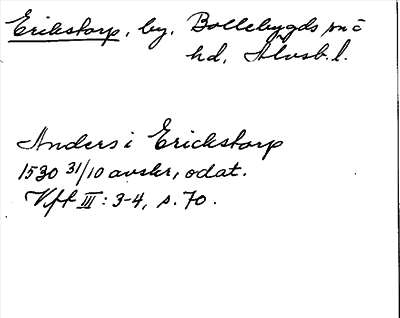 Erikstorp, by, Bollebygds sn o
hd, Älvsb. l.
Anders i Erickstorp
1530 31/10 avskr, odat.
Vft III: 3-4, s. 70.